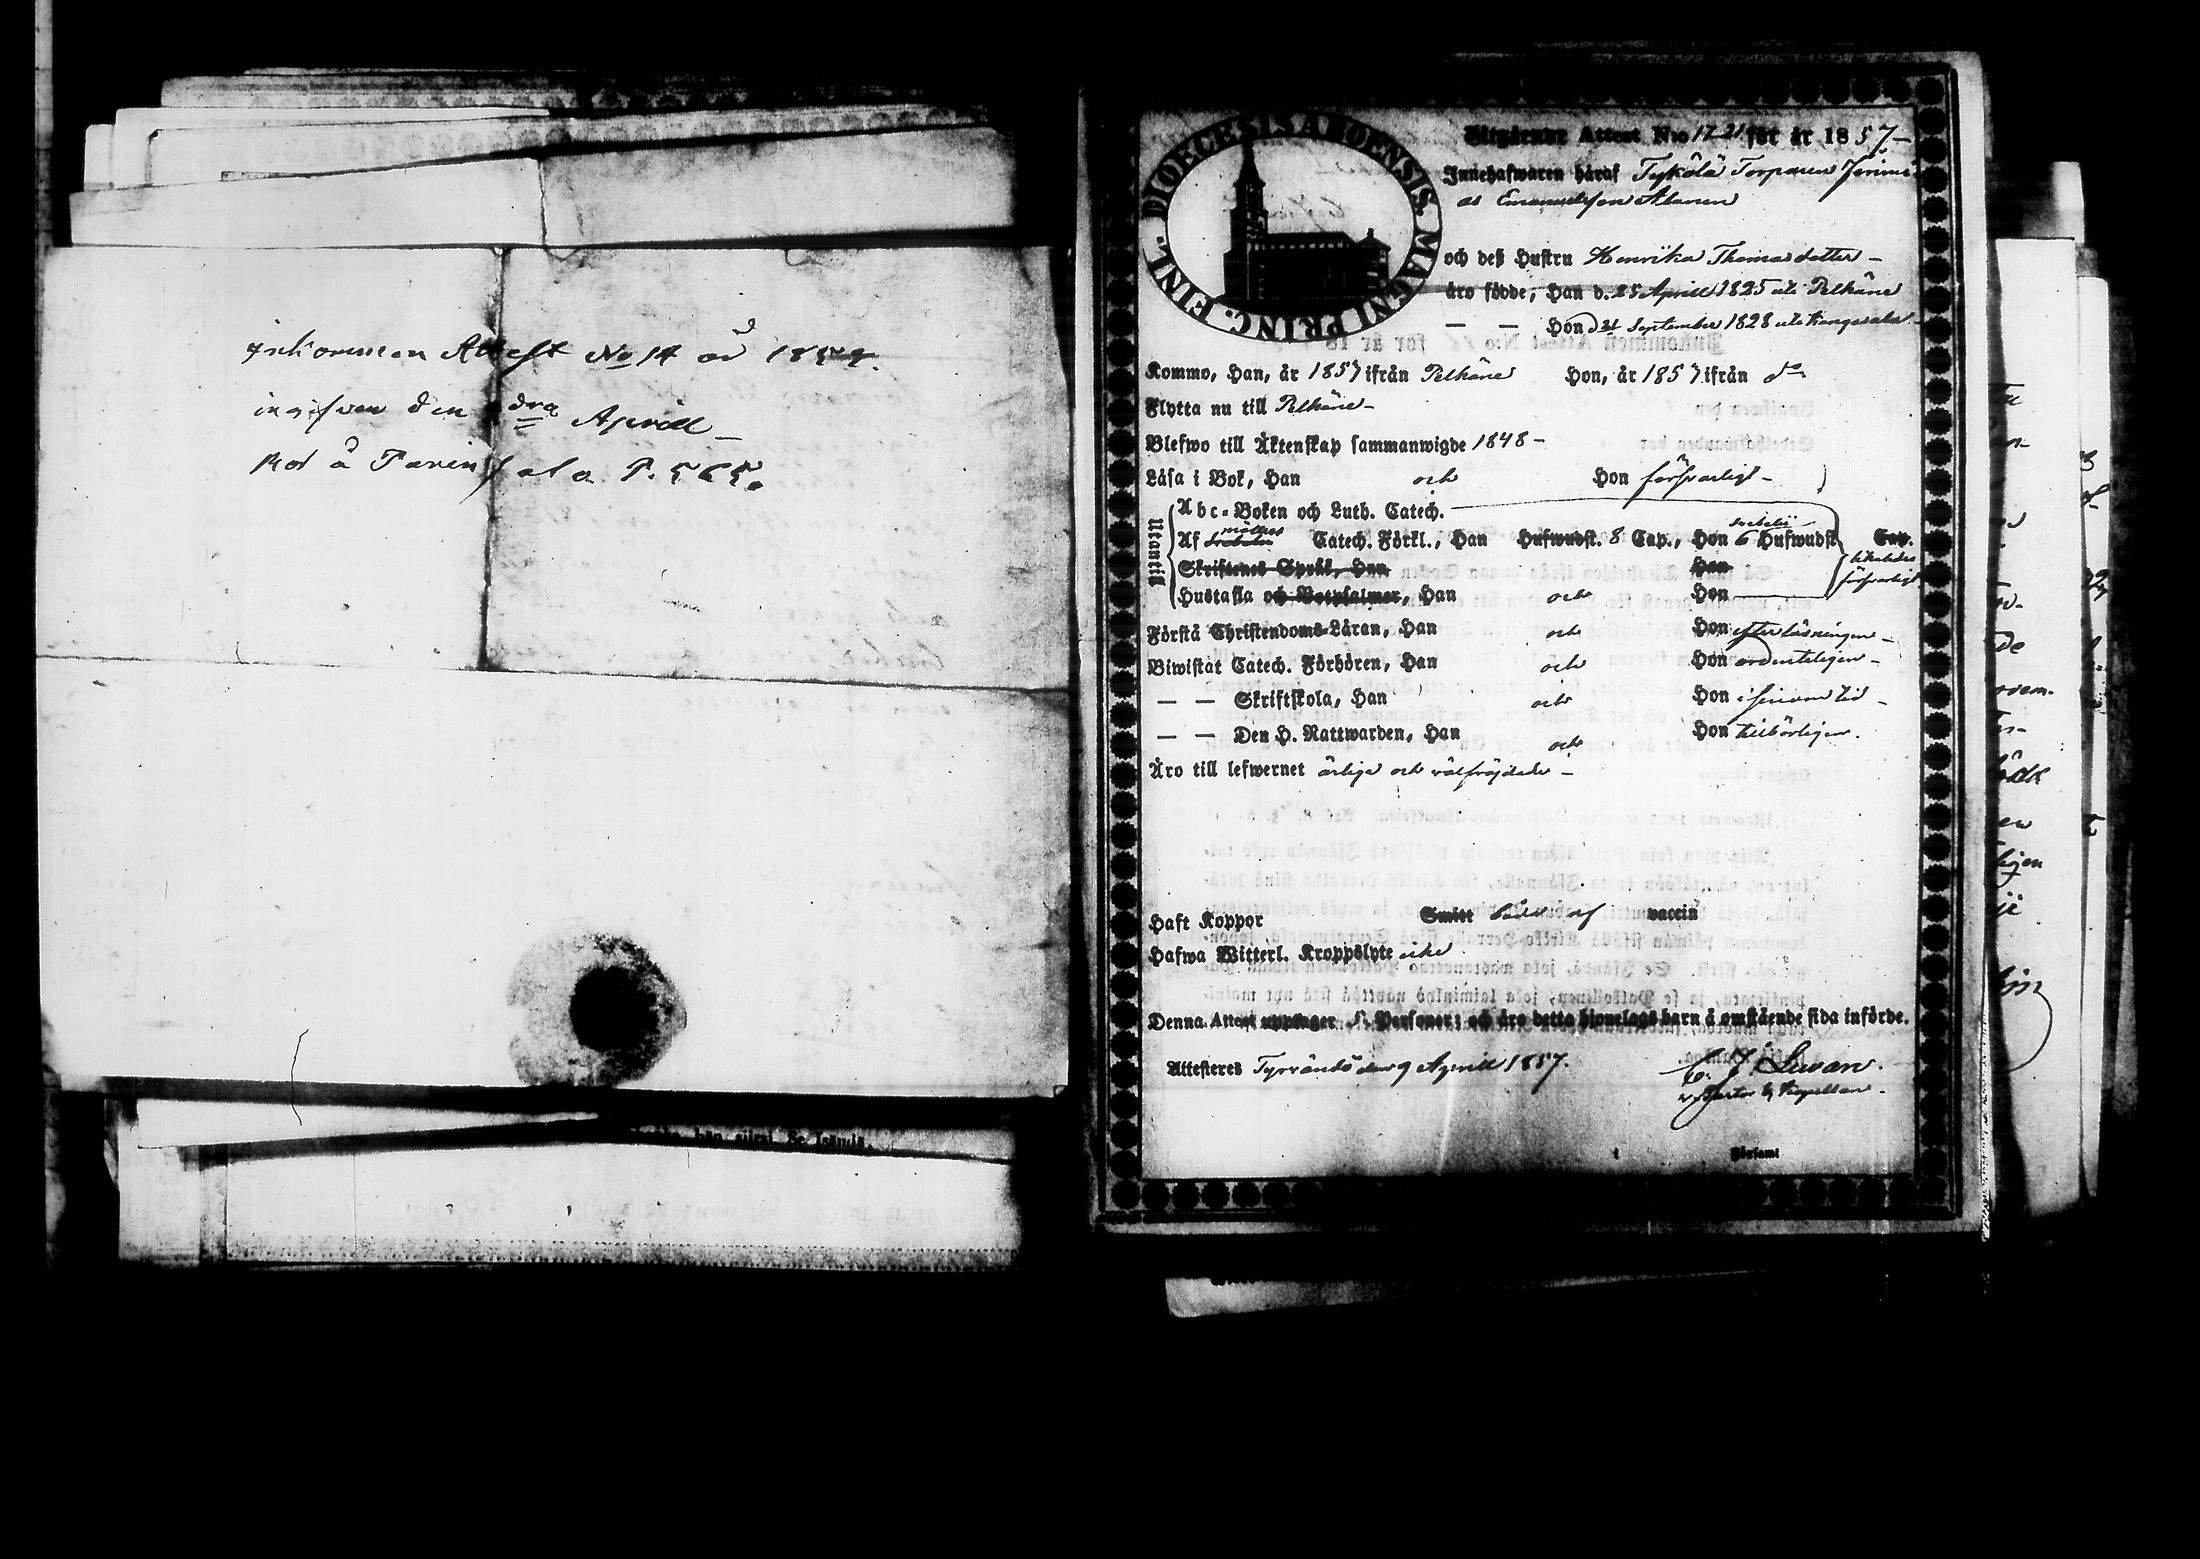 inkommen Attest No 14 år 1857.
ingifven den 3dra April
Rot å Pavinsala P. 565.
DIOECESIS ABOENSIS. MAGNI PRINC. FINL.
Utgående Attest N:o 17-21 för år 1857-
Innehafwaren häraf Tykölä Torparen Jerimi
as Emanuelsson Alanen
och deß Hustru Henrika Thomasdotter -
äro födde, Han d. 25 April 1825 uti Pelkäne
— — Hon d 21 September 1828 uti Kangasala -
Kommo, Han, år 1857 ifrån Pelkäne Hon, år 1857 ifrån do
Flytta nu till Pelkäne -
Blefwo till Äktenskap sammanwigde 1848 -
Läsa i Bok, Han och Hon försvarligt -
Utantill
Abc-Boken och Luth. Catech.
Af Catech. Förkl., Han Hufwudst. 8 Cap., Hon 6 Hufwudst. Cap.
Skriftenes Språk, Han Han
försvarligt
Hustafla och Botpsalmer, Han och Hon
Förstå Christendoms-Läran, Han och Hon efter läsningen -
Biwistat Catech. Förhören, Han och Hon ordenteligen -
— — Skriftskola, Han och Hon i sinom tid -
— — Den H. Nattwarden, Han och Hon tillbörligen.
Äro till lefwernet ärliga och välfrägdade -
Haft Koppor Smitt af vaccin
Hafwa Witterl. Kroppslyte icke
Denna Attest upptager 5. Personer; och äro detta hjonelags barn å omstående sida införde.
Attesteres Tyrväntö den 9 April 1857.